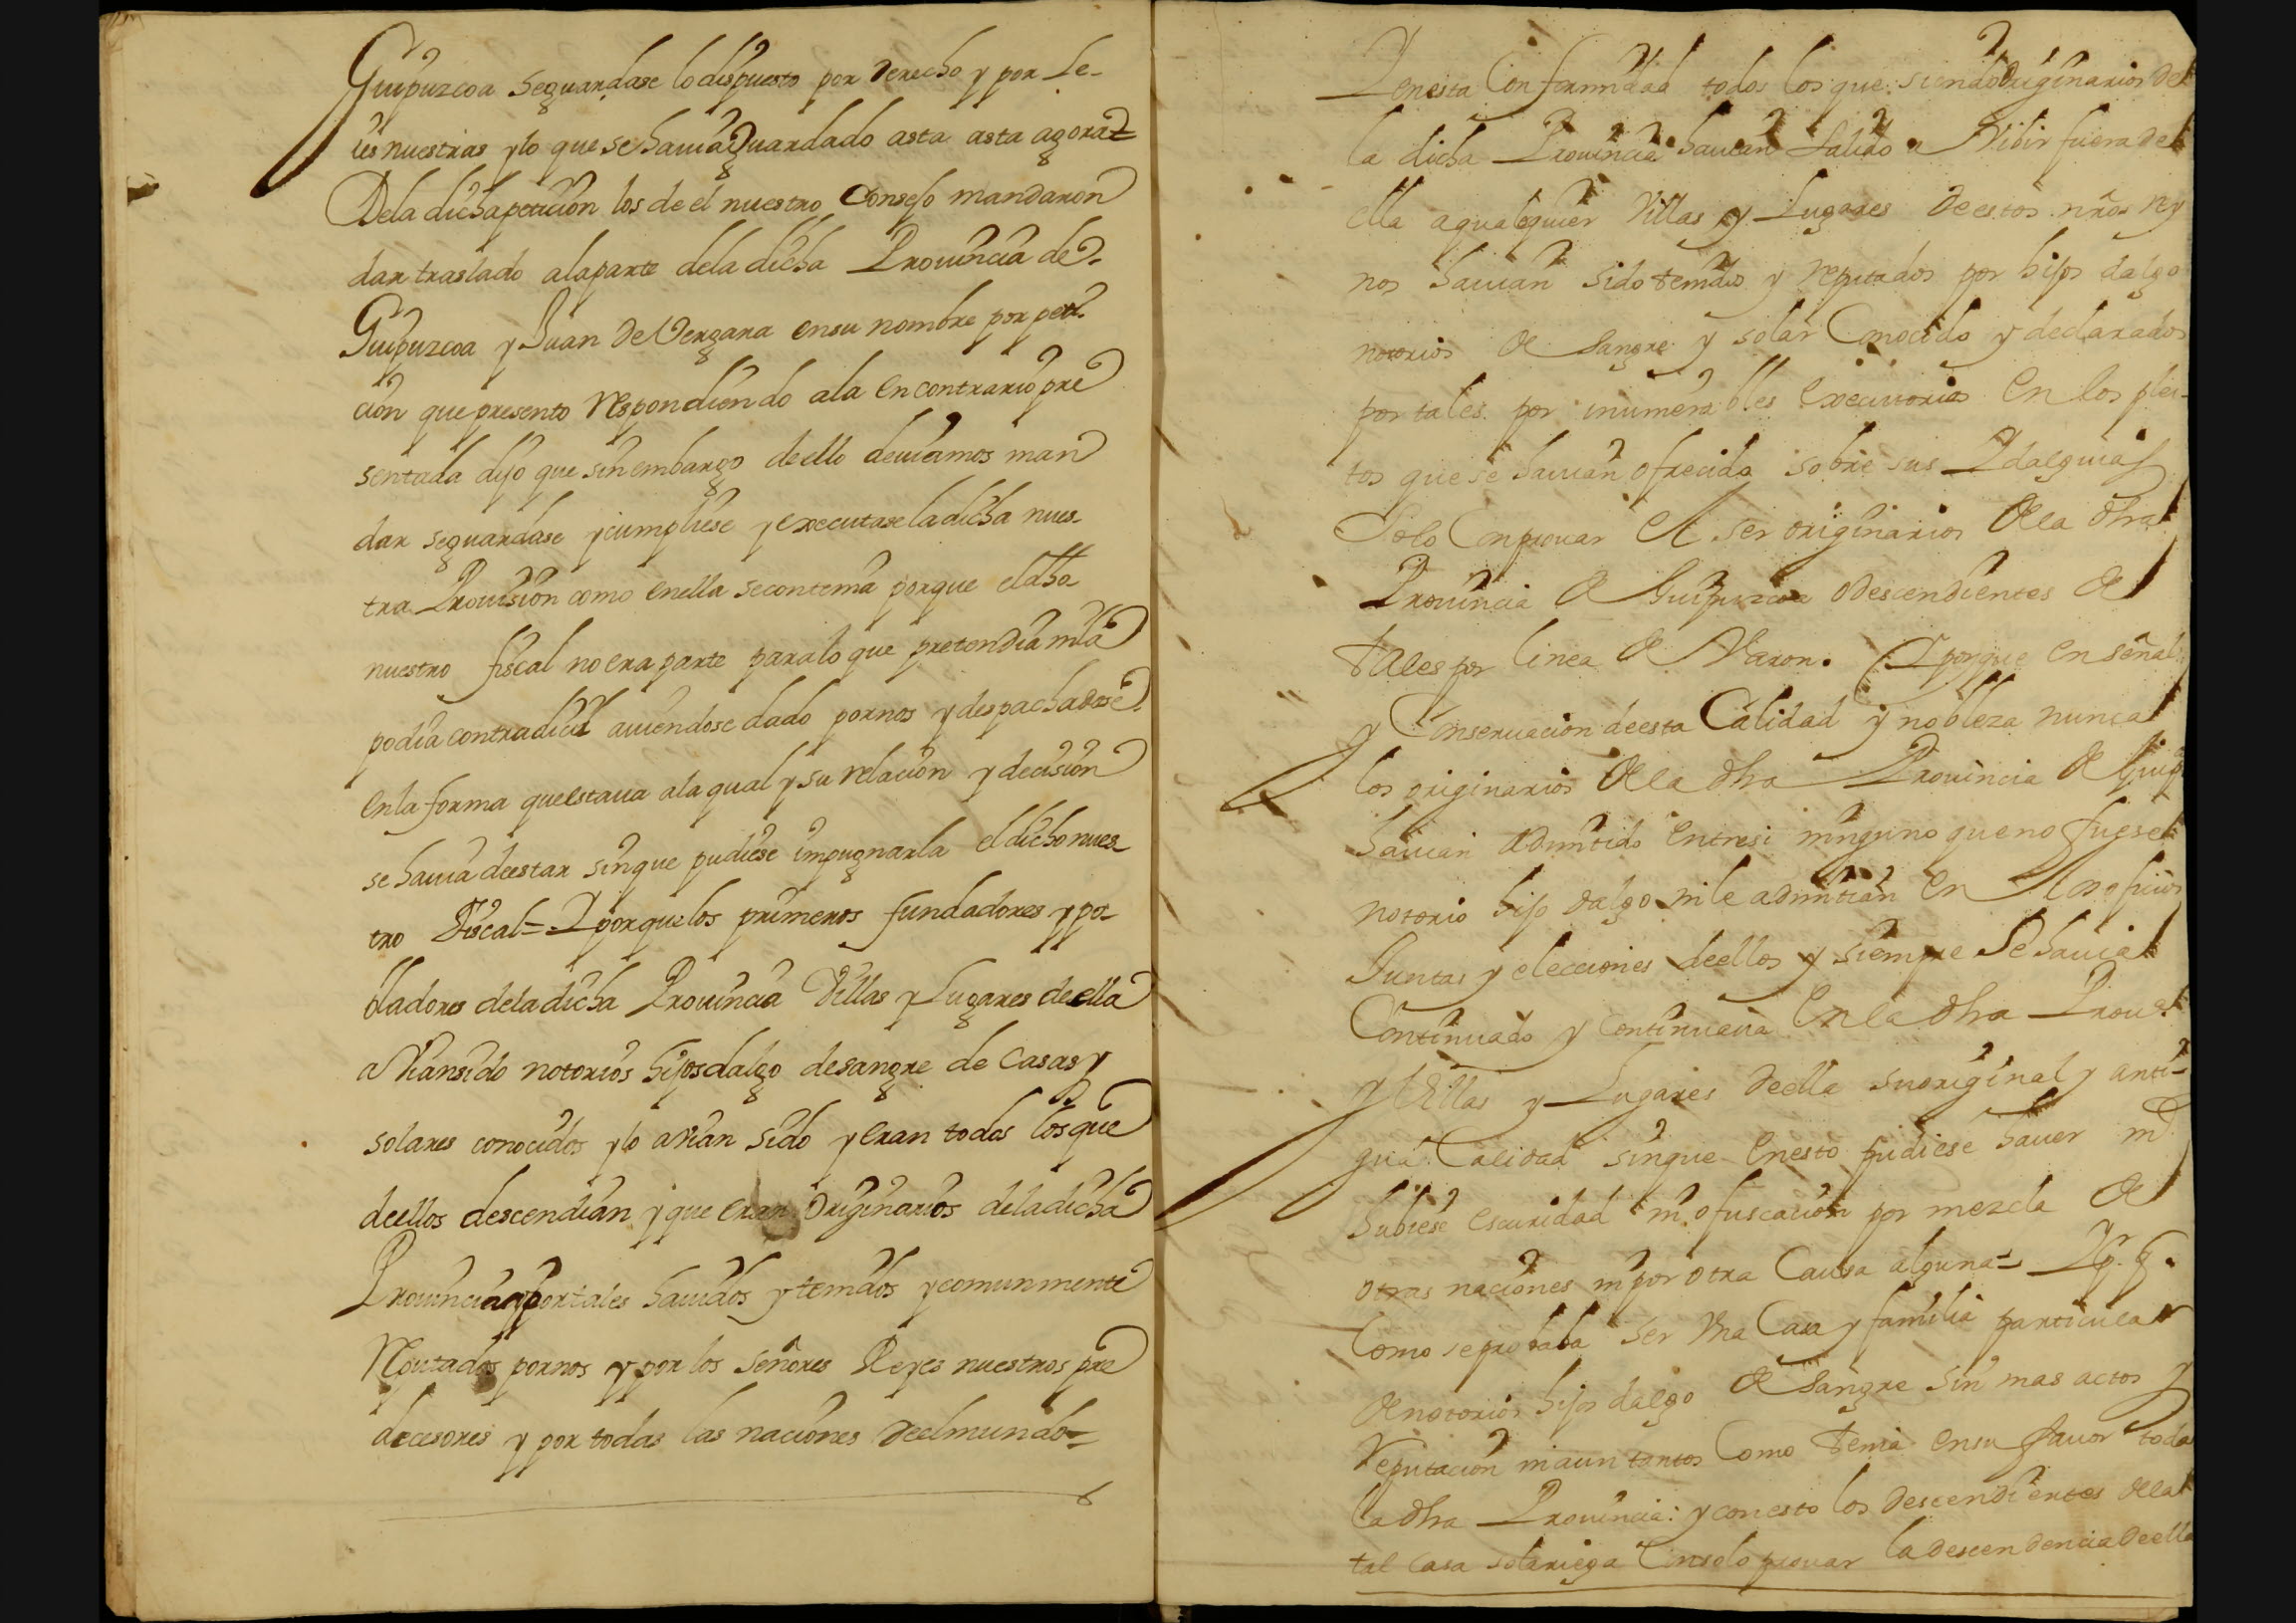 Guipuzcoa seguardase lodispuesto por derecho y por Le-
ies nuestras y lo que se hauia guardado asta asta agora=
Dela dicha peticion los de el nuestro Consejo mandaron
dar traslado alaparte dela dicha Prouincia de
Guipuzcoa y Juan de Vergara ensu nombre por peti-
cion que presento Respondiendo ala en contrario pre
sentada dijo que sin embargo deello deuiamos man
dar seguardase y cumpliese y executase ladicha nues-
tra Prouision como enella secontenia porque eldho
nuestro fiscal no era parte paralo que pretendia nila
podia contradicir auiendose dado pornos y despachadose
enla forma queestaua ala qual y su relacion y decision
se hauia deestar sinque pudiese impugnarla eldicho nues-
tro Fiscal= Y porquelos primeros fundadores y po-
bladores deladicha Prouincia Villas y Lugares deella
avian sido notorios hijosdalgo desangre de casas y
solares conocidos y lo avian sido y eran todos losque
deellos descendian y que eran originarios deladicha
Prouincia y portales hauidos y tenidos y comunmente
Reputados pornos y por los señores Reyes nuestros pre
decesores y por todas las naciones deelmundo=
Y enesta Conformidad todos los que siendo originarios de
la dicha Prouincia hauian salido a Vibir fuera de
ella aqualequier Villas y Lugares deestos nrõs Rey
nos hauian sido tenidos y reputados por hijos dalgo
notorios de sangre y solar Conocido y declarados
por tales por inumerables executorias en los plei-
tos que se hauian ofrecido sobre sus Ydalguias
Solo Conprouar el ser originarios dela dha
Prouincia de Guipuzcoa o descendientes de
tales por linea de Varon. Y porque en señal
y Conseruacion deesta Calidad y nobleza nunca
los originarios dela dha Prouincia de Guipª
hauian admitido entresi ninguno que no fuese
notorio hijo dalgo nile admitian en los oficios
Juntas y elecciones deellos y siempre se hauia
Continuado y continuaua enla dha Prouª
y Villas y Lugares deella su original y anti-
gua Calidad sinque enesto pudiese hauer ni
hubiese escuridad ni ofuscacion por mezcla de
otras naciones nipor otra Causa alguna= Y p. q.
Como seprobaba ser Vna Casa y familia particular
de notorios hijos dalgo de sangre sin mas actos y
Reputacion niaun tantos Como tenia ensu fauor toda
la dha Prouincia: y conesto los descendientes dela
tal Casa solariega Consolo prouar la descendencia deella